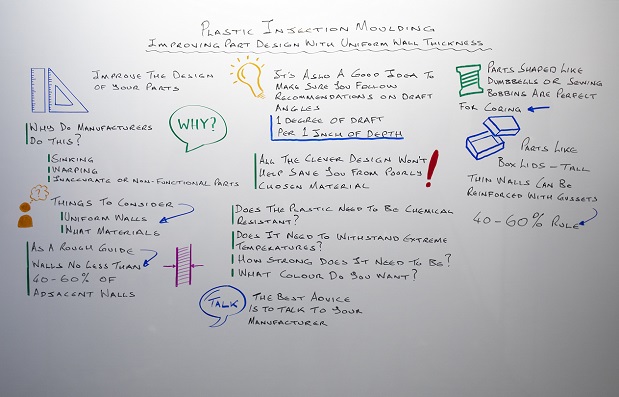 Plastic Injection Moulding
Improving Part Design With Uniform Wall Thickness
Improve The Design
of Your Parts
Why Do Manufacturers
Do This?
Sinking
Warping
Inaccurate or Non-Functional Parts
WHY?
Things To Consider
Uniform Walls
What Materials
As A Rough Guide
Walls No Less Than
40-60% OF
Adjacent Walls
It's Also A Good Idea To
Make Sure You Follow
Recommendations on Draft
Angles
1 Degree of Draft
Per 1 Inch of Depth
All The Clever Design Won't
Help Save You From Poorly
Chosen Material
!
Does The Plastic Need To Be Chemical
Resistant?
Does It Need To Withstand Extreme
Temperatures?
How Strong Does It Need To Be?
What Colour Do You Want?
TALK
The Best Advice
Is To Talk To Your
Manufacturer
Parts Shaped Like
Dumbbells or Sewing
Bobbins Are Perfect
For Coring
Parts Like
Box Lids - Tall
Thin Walls Can Be
Reinforced With Gussets
40-60% Rule
?